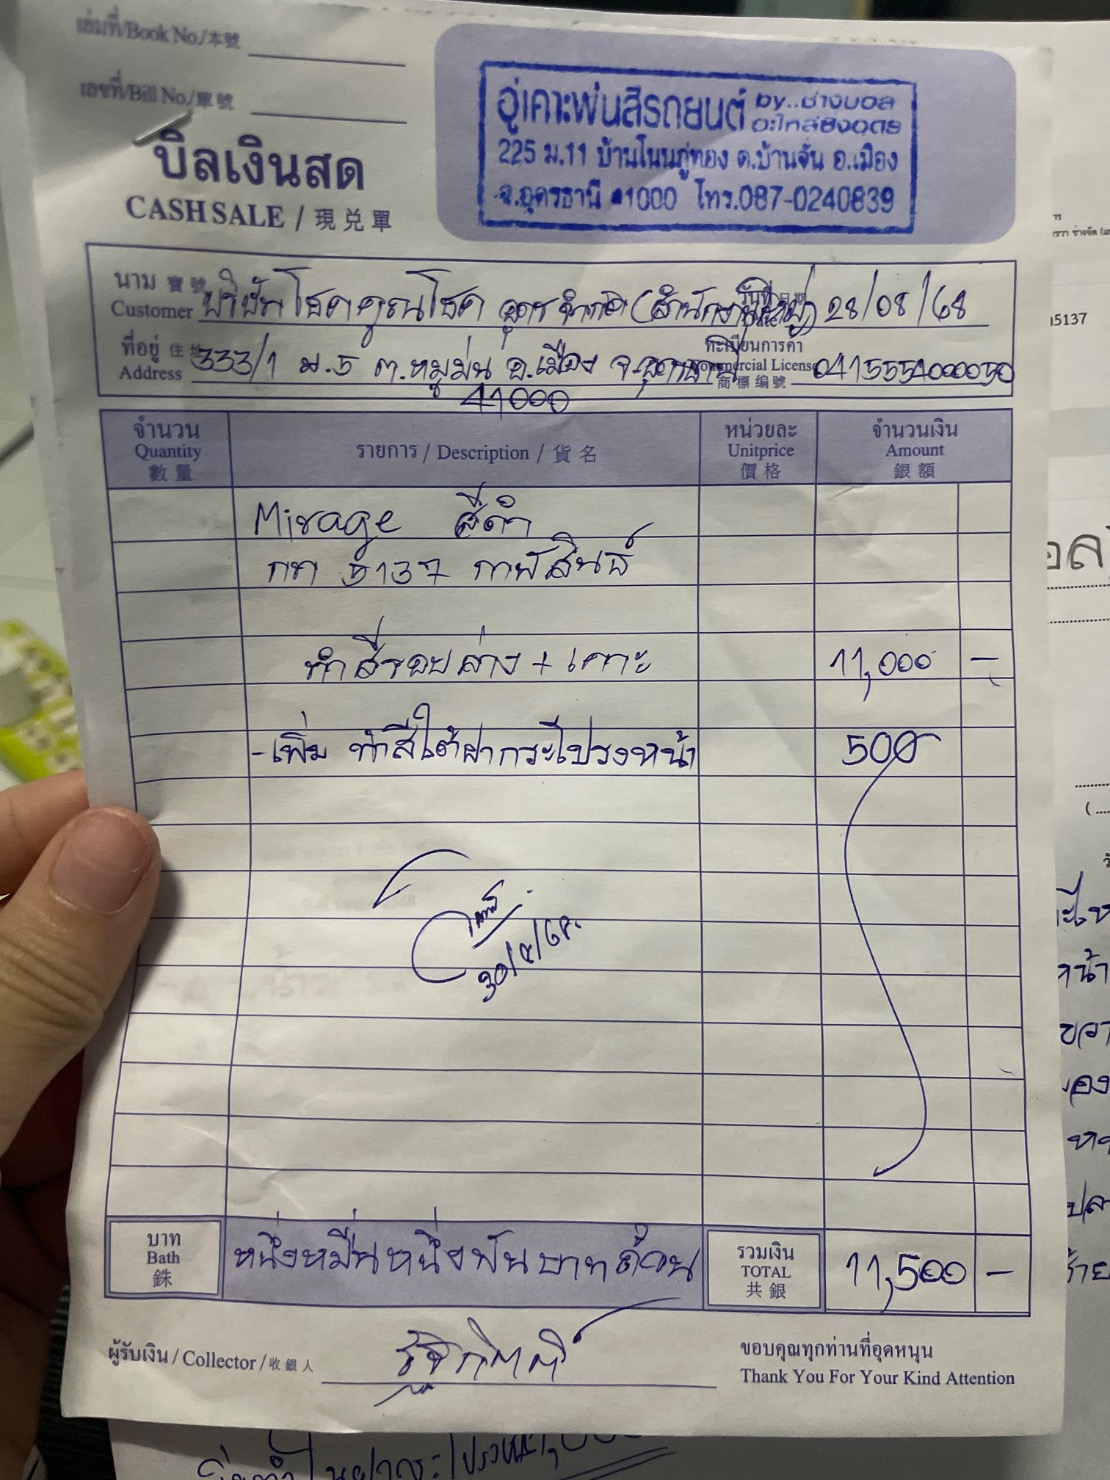 เล่มที่/Book No./本號
เลขที่/Bill No./單號
บิลเงินสด
CASH SALE / 現兑單
อู่เคาะพ่นสีรถยนต์ by..ช่างบอล
อะไหล่ยิ่งอดร
225 ม.11 บ้านโนนภู่ทอง ต.บ้านจั่น อ.เมือง
จ.อุดรธานี 41000 โทร.087-0240839
นาม 寶號 Customer บริษัท โชคคูณโชค อุดร จำกัด (สำนักงานใหญ่) วันที่ 28/08/68
ที่อยู่ 住址 Address 333/1 ม.5 ต.หมูม่น อ.เมือง จ.อุดรธานี ทะเบียนการค้า Commercial License 商標編號 0415554000050
41000
จำนวน Quantity 數量 รายการ / Description / 貨名 หน่วยละ Unitprice 價格 จำนวนเงิน Amount 銀額
Mirage สีดำ
กท 5137 กาฬสินธุ์
ทำสีรอบล่าง + เคาะ 11,000 -
- เพิ่ม ทำสีใต้ฝากระโปรงหน้า 500
30/8/68.
บาท Bath 銖 หนึ่งหมื่นหนึ่งพันบาทถ้วน รวมเงิน TOTAL 共銀 11,500 -
ผู้รับเงิน / Collector / 收銀人
ขอบคุณทุกท่านที่อุดหนุน
Thank You For Your Kind Attention